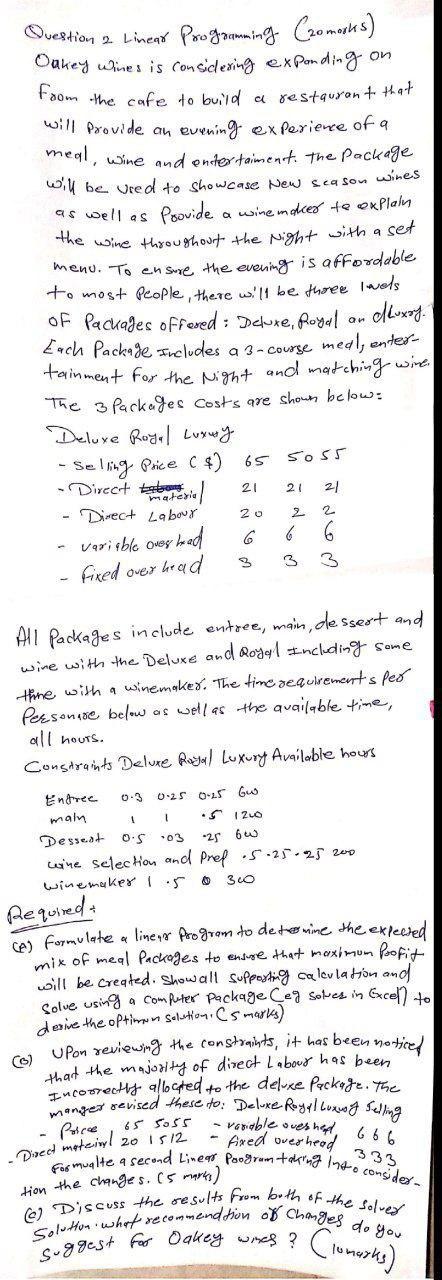 Question 2 Linear Programming. (20 marks)
Oakey wines is considering expanding on
from the cafe to build a restaurant that
will provide an evening experience of a
meal, wine and entertaiment. The Package
will be used to showcase New season wines
as well as Provide a winemaker to explain
the wine throughout the Night with a set
menu. To ensure the evening is affordable
to most people, there will be three levels
of Packages offered: Deluxe, Royal an dLuxry.
Each Package Includes a 3-course meal, enter-
tainment for the Night and matching wine.
The 3 Packages Costs are shown below:
Deluxe Royal Luxury
- Selling Price ($) 65 50 55
- Direct material 21 21 21
- Direct Labour 20 2 2
- variable over head 6 6 6
- fixed over head 3 3 3
All Packages include entree, main, dessert and
wine with the Deluxe and Royal Including some
time with a winemaker. The time requirements Per
Person are below as well as the available time,
all hours.
Constraints Deluxe Royal Luxury Available hours
Entree 0.3 0.25 0.25 600
main 1 1 .5 1200
Dessert 0.5 .03 .25 600
wine selection and Prep .5 .25 .25 200
winemaker 1 .5 0 300
Required:
(A) Formulate a linear Program to determine the expected
mix of meal Packages to ensure that maximum Profit
will be created. Show all supporting calculation and
Solve using a computer package (eg solver in Excel) to
derive the optimum solution. (5 marks)
(B) Upon reviewing the constraints, it has been noticed
that the majority of direct Labour has been
Incorrectly allocated to the deluxe Package. The
manger revised these to: Deluxe Royal Luxury Selling
- Price 65 50 55 - variable over head 6 6 6
- Direct mateirwl 20 15 12 - fixed overhead 3 3 3
Formualte a second Linear Program taking Into consider-
tion the changes. (5 marks)
(C) Discuss the results from both of the solved
Solution. what recommendtion of changes do you
suggest for Oakey wines? (10 marks)